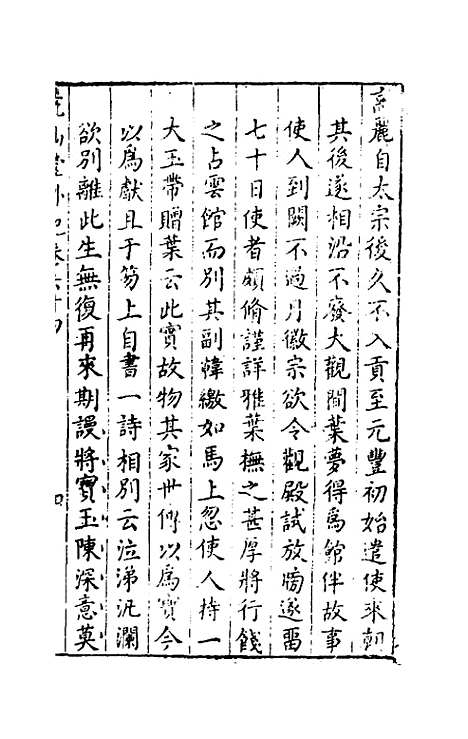 高麗自太宗後久不入貢至元豐初始遣使來朝
其後遂相沿不廢大觀間葉夢得爲館伴故事
使人到闕不過月徽宗欲令觀殿試放牓遂畱
七十日使者頗脩謹詳雅葉撫之甚厚將行餞
之占雲館而別其副韓繳如馬上忽使人持一
大玉帶贈葉云此實故物其家世傳以爲寶今
以爲獻且于笏上自書一詩相別云泣涕汍瀾
欲別離此生無復再來期謾將寶玉陳深意莫
堯山堂外紀卷六十四
四